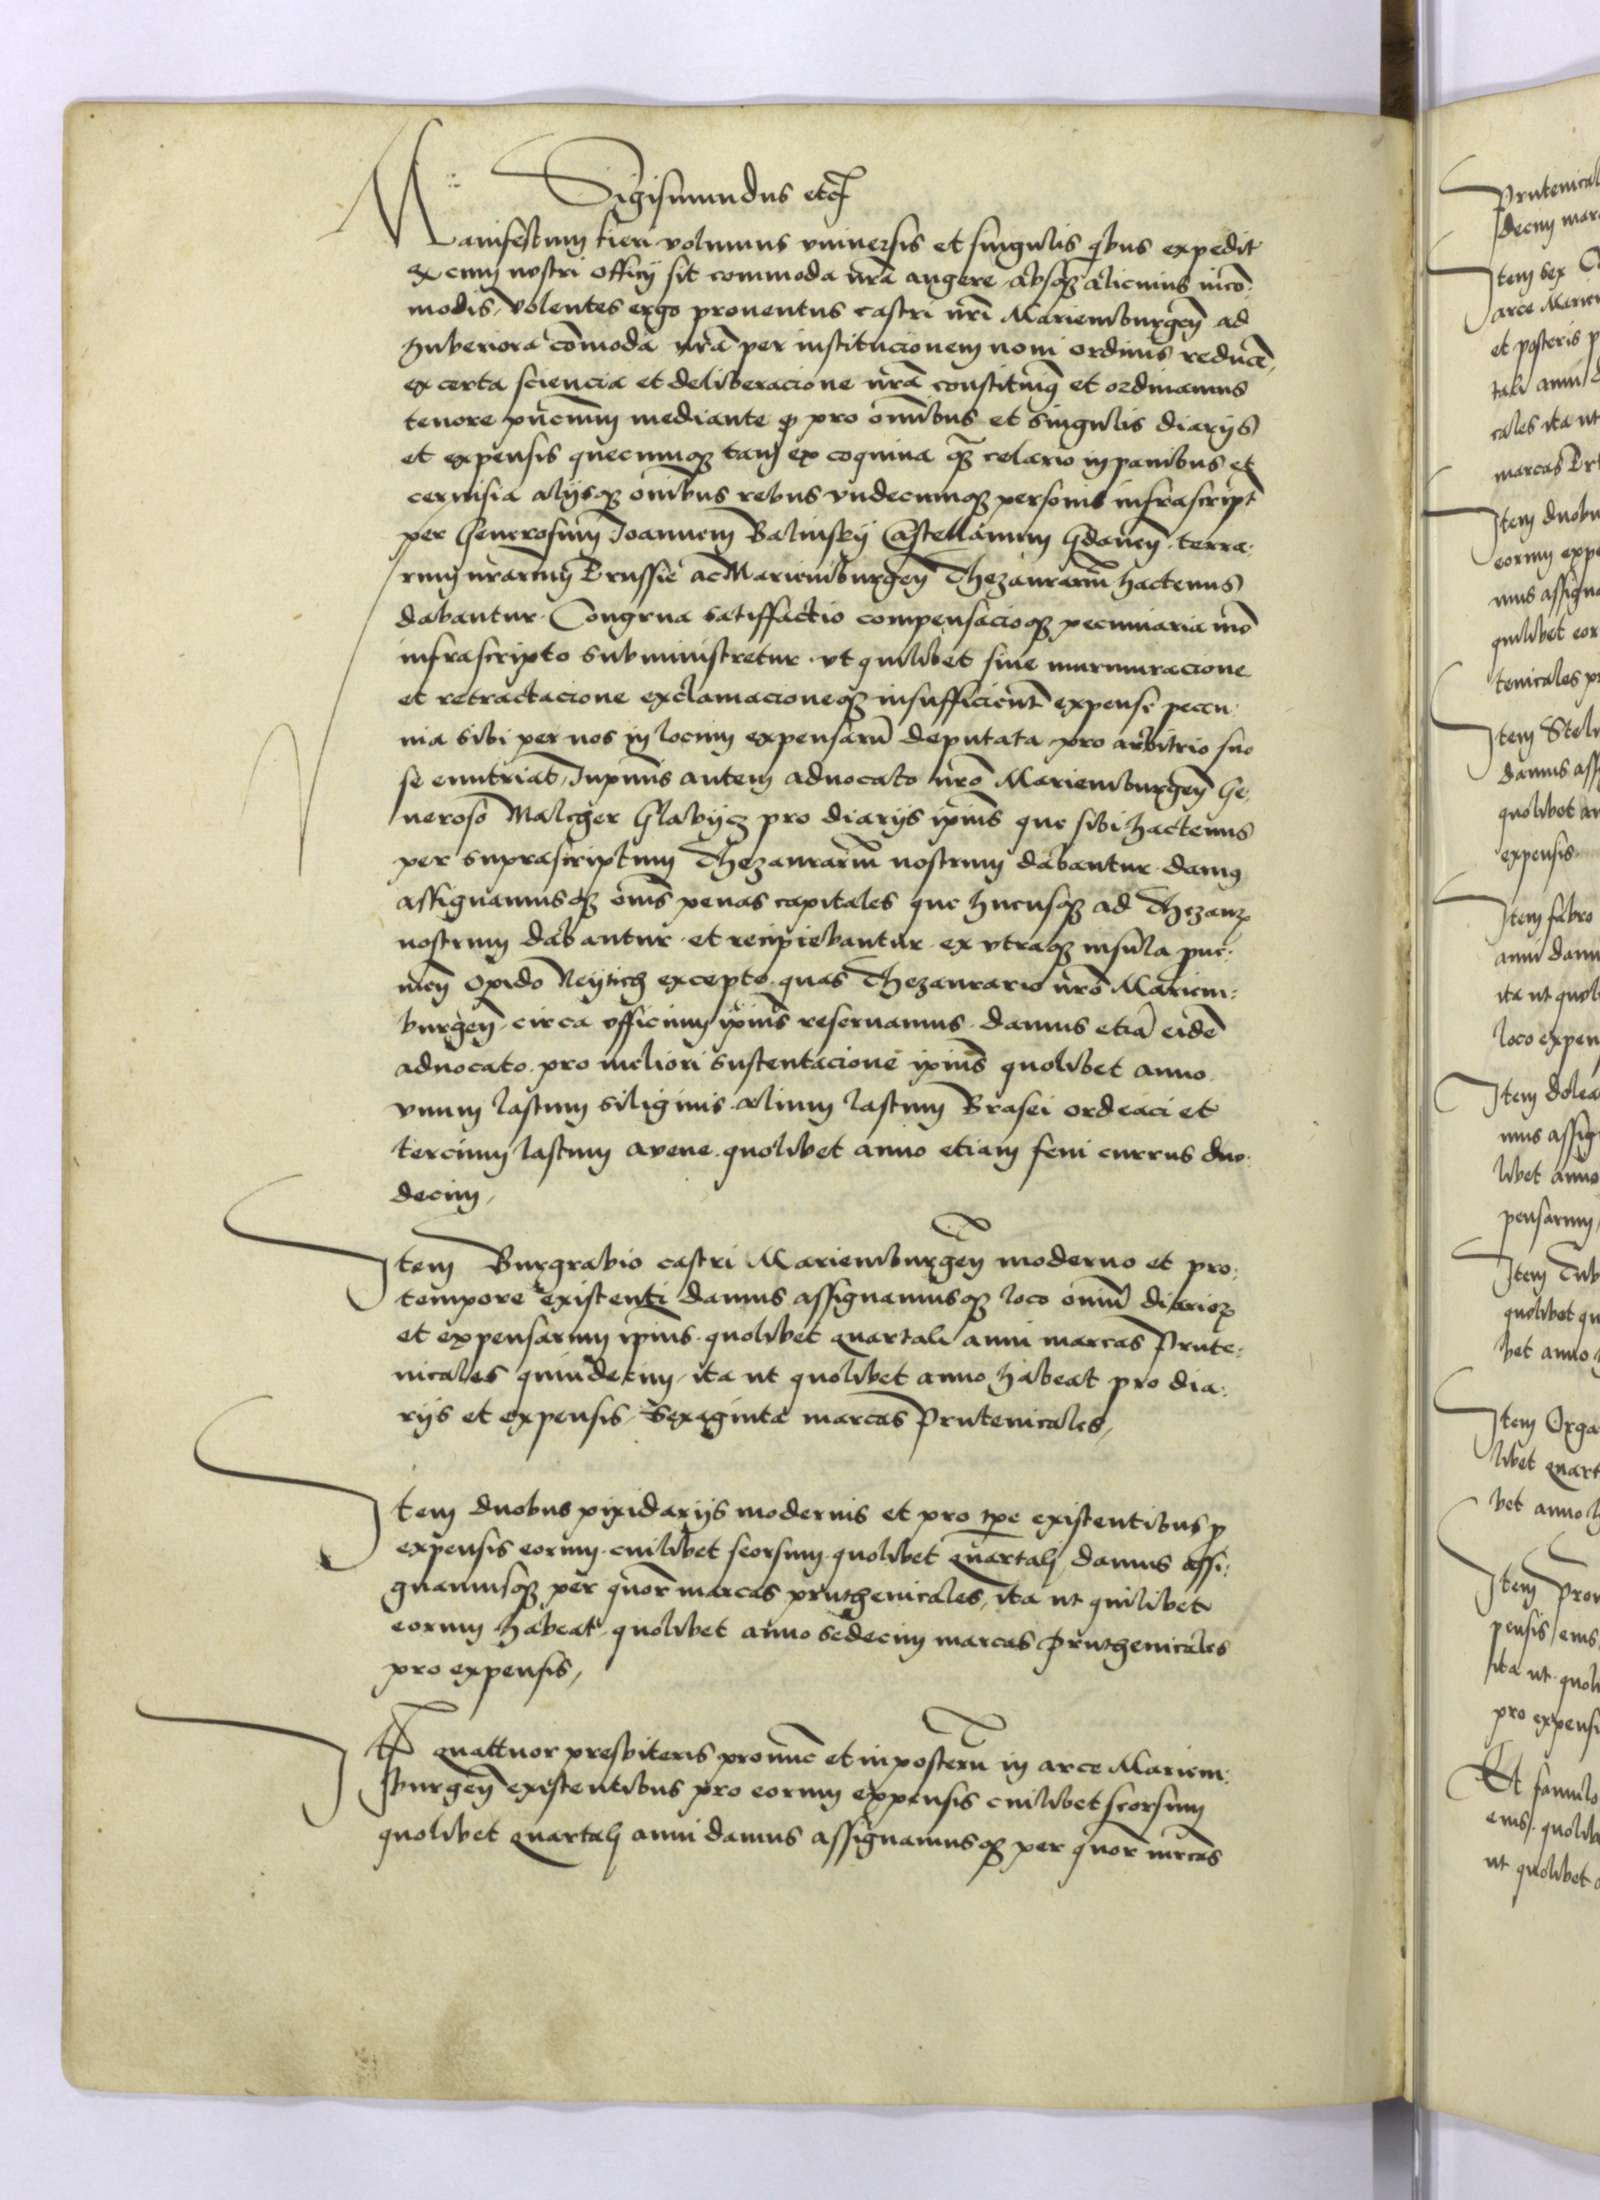 Sigismundus etc
Manifestum fieri volumus vniuersis et singulis qbus expedit
Et cum nostri officij sit commoda nrā augere absqꝫ alicuius incō:
modis, volentes ergo prouentus castri nrī Mariemburgeñ ad
huberiora cōmoda nrā per institucionem noui ordinis reducē,
ex certa sciencia et deliberacione nrā constituimꝰ et ordinamus
tenore pñcium mediante ꝙ pro omībus et singulis diarijs
et expensis quecumqꝫ tam ex coquina qꝫ celario in panibus et
ceruisia alijsqꝫ omībus rebus vndecumqꝫ personis infrascript
per Generosum Joannem Balinsky Castellanum Gdaneñ. terra:
rum nrarum Prussie ac Mariemburgeñ Thezaurariū hactenus
dabantur. Congrua satisfactio compensacioqꝫ pecuniaria mō
infrascripto subministretur. vt quilibet sine murmuracione
et retractacione exclamacioneqꝫ insufficient expense pecu:
nia sibi per nos in locum expensarū deputata pro arbitrio suo
se enutriat, Inprimis autem aduocato nrō Mariemburgeñ Ge:
neroso Malcher Glabycz pro diarijs ipius que sibi hactenus
per suprascriptum Thezaurariū nostrum dabantur. damꝰ
assignamusqꝫ omēs penas capitales que hucusqꝫ ad Thezaurꝝ
nostrum dabantur. et recipiebantur. ex vtraqꝫ insula
opido Neytich excepto. quas Thezaurario nrō Mariem:
burgeñ. circa officium ipius reseruamus. damus etiā eidē
aduocato. pro meliori sustentacione ipius quolibet anno
vnum lastum siliginis. alium lastum Brasei ordeaci et
tercium lastum avene. quolibet anno etiam feni currus duo:
decim,
Item Burgrabio castri Mariemburgeñ moderno et pro:
tempore existenti damus assignamusqꝫ loco omīm diariorꝝ
et expensarum ipius. quolibet quartali anni marcas Prute:
nicales quindecim, ita ut quolibet anno habeat pro dia:
rijs et expensis, Sexaginta marcas Prutenicales,
Item duobus pixidarijs modernis et pro tpe existentibus ꝓ
expensis eorum. cuilibet seorsum. quolibet quartalj, damus assi:
gnamusqꝫ per quor marcas pruthenicales, ita ut quilibet
eorum habeat. quolibet anno sedecim marcas Pruthenicales
pro expensis,
Itē quattuor presbiteris pronūc et inposterū in arce Mariem:
burgeñ existentibus pro eorum expensis cuilibet seorsum
quolibet quartalj anni damus assignamusqꝫ per quor mrcas
Prutenical
decim mar
Item sex
arce Mariem
et posteris p
tali anni
cales ita ut
marcas Prt
Item duobu
eorum expe
mus assigna
quilibet eor
tenicales pr
Item
damus ass
quolibet an
expensis
Item fabro
anni damu
ita ut quol
loco expen
Item dolea
mus assig
libet anno
pensarum,
Item
quolibet qu
bet anno
Item Orga
libet quart
bet anno h
Item
pensis eius
ita ut quoli
pro expensi
Et famulo
eius. quolib
ut quolibet a